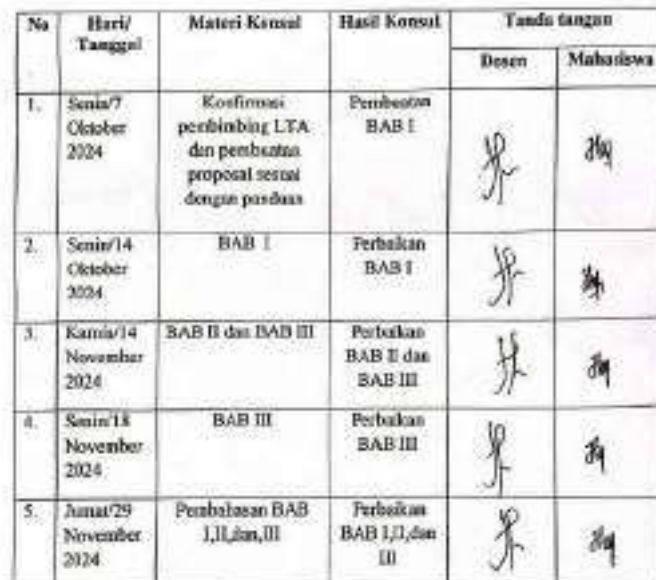 No
Hari/
Tanggal
Materi Konsul
Hasil Konsul
Tanda tangan
Dosen
Mahasiswa
1.
Senin/7
Oktober
2024
Konfirmasi
pembimbing LTA
dan pembuatan
proposal sesuai
dengan panduan
Pembuatan
BAB I
2.
Senin/14
Oktober
2024
BAB I
Perbaikan
BAB I
3.
Kamis/14
November
2024
BAB II dan BAB III
Perbaikan
BAB II dan
BAB III
4.
Senin/18
November
2024
BAB III
Perbaikan
BAB III
5.
Jumat/29
November
2024
Pembahasan BAB
I,II,dan,III
Perbaikan
BAB I,II,dan
III